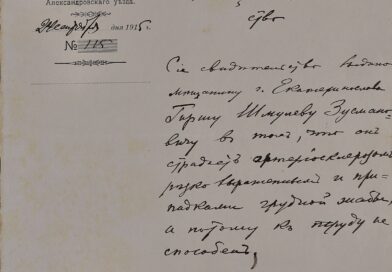 Александровскаго уѣзда.
сентября дня 1915 г.
№ 115
ство
Сіе свидѣтельство выдано
мѣщанину г. Екатеринослава
Гиршу Шмулеву Зусмано-
вичу въ томъ, что онъ
страдаетъ артеріосклерозомъ
рѣзко выраженнымъ и при-
падками грудной жабы,
а потому къ труду не
способенъ,